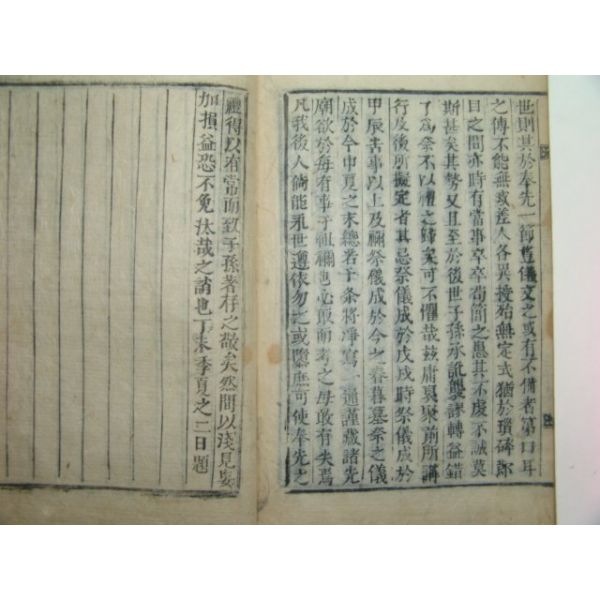 世則其於奉先一節豈儀文之或有不備者第口耳
之傳不能無致差人各異授始無定式猶於瑣碎節
目之間亦時有當事卒卒苟簡之患其不虔不誠莫
斯甚矣其勢又且至於後世子孫承訛襲謬轉益錯
了爲祭不以禮之歸矣可不懼哉玆庸裒聚前所講
行及後所擬定者其忌祭儀成於戊戌時祭儀成於
甲辰若事以上及禰祭儀成於今之春暮墓祭之儀
成於今中夏之末總若干条將淨寫一通謹藏諸先
廟欲於每有事于祖禰也必取而考之毋敢有失焉
凡我後人倘能永世遵依勿之或墜庶可使奉先之
禮得以有常而致子孫著存之敬矣然間以淺見妄
加損益恐不免汰哉之誚也丁未季夏之二日題